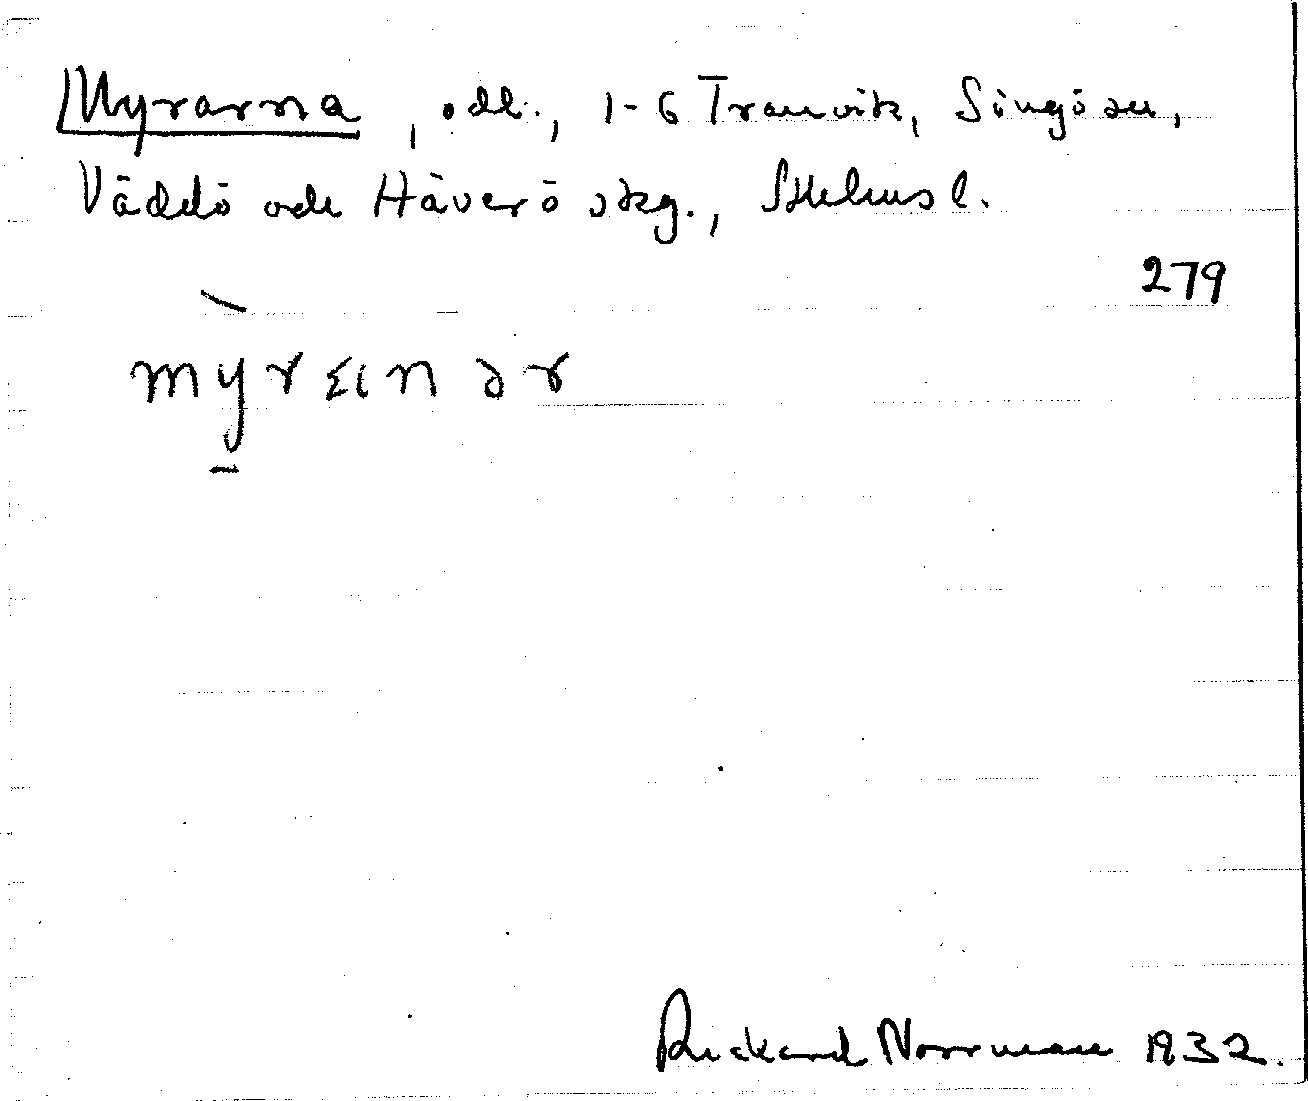 Myrarna, odl., 1-6 Tranvik, Singö sn,
Väddö och Häverö skg., Sthlms l.
279
mỳ̠rɛınər
Rickard Norrman 1932.